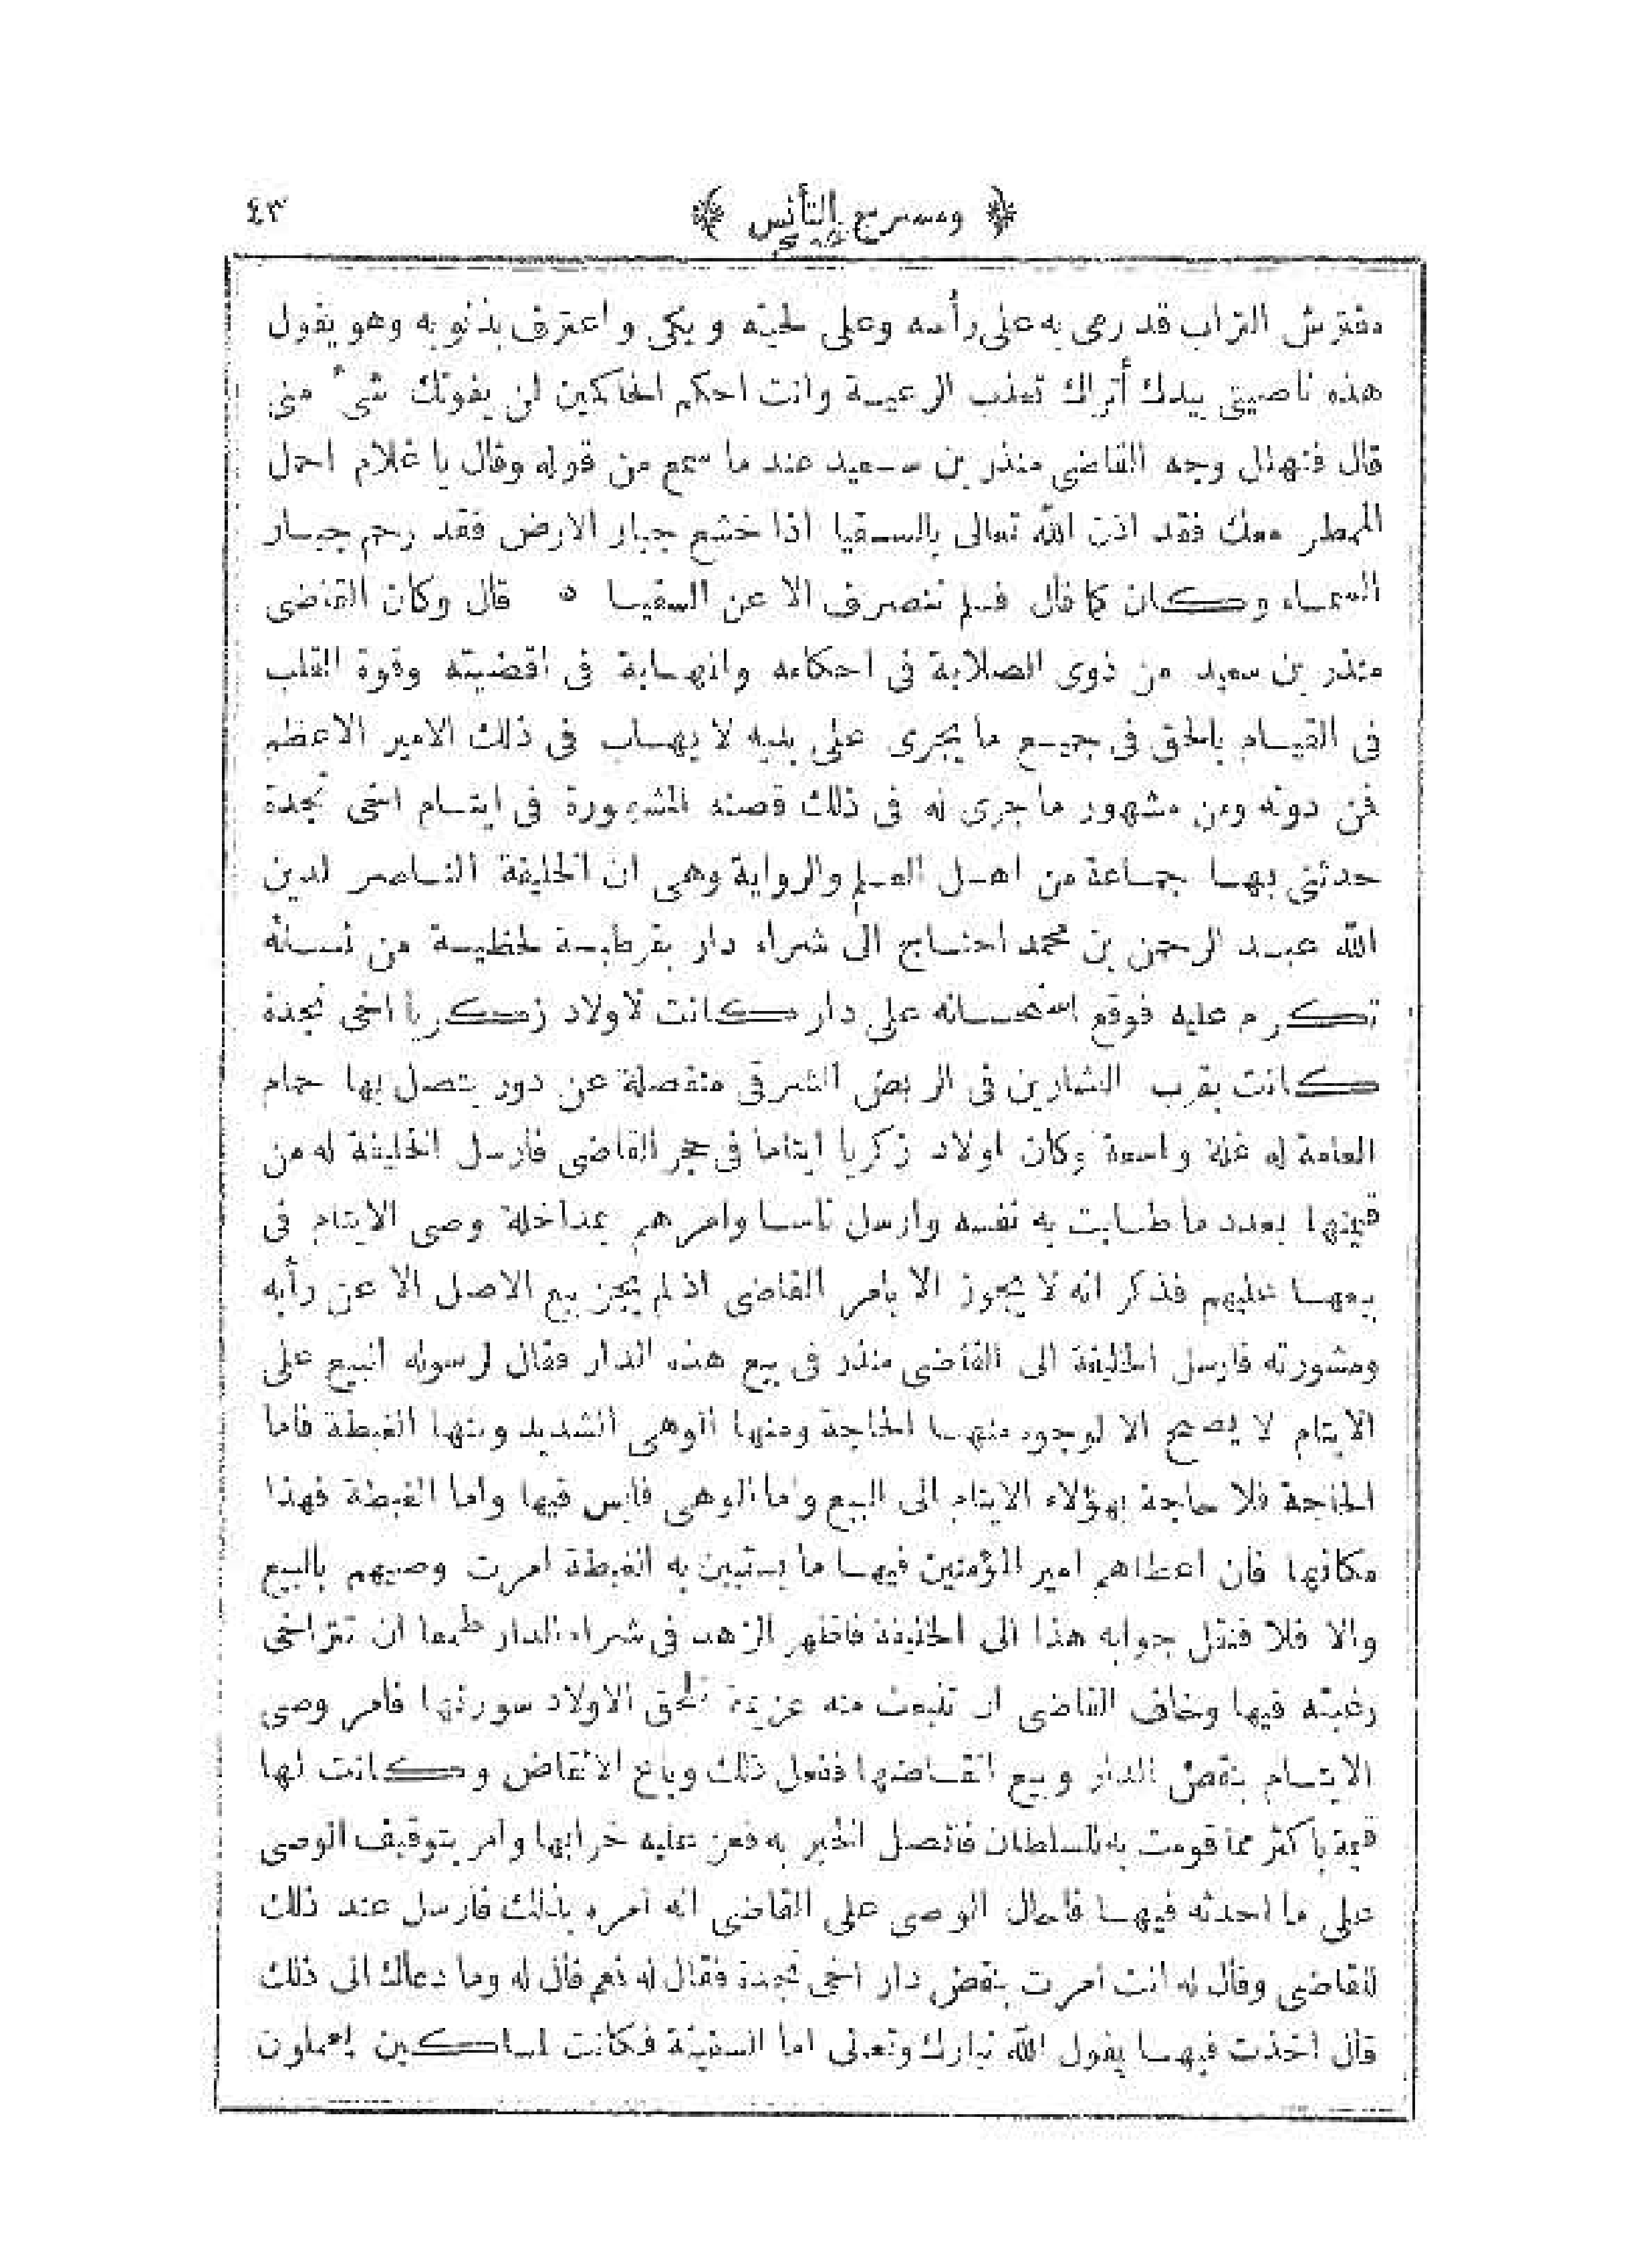 ﴿ ومسرح التأنس ﴾ ٤٣
مفترش التراب قد رمى به على رأسه وعلى لحيته وبكى واعترف بذنوبه وهو يقول
هذه ناصيتى بيدك أتراك تعذب الرعيـة وانت احكم الحاكمين لن يفوتك شىء منى
قال فتهلل وجه القاضى منذر بن سـعيد عند ما سمع من قوله وقال يا غلام احمل
الممطر معك فقد اذن الله تعالى بالسـقيا اذا خشع جبار الارض فقد رحم جبـار
السمـاء وكـان كما قال فـلم تنصرف الا عن السقيـا ٥ قال وكان القاضى
منذر بن سعيد من ذوى الصلابة فى احكامه والمهـابة فى اقضيته وقوة القلب
فى القيـام بالحق فى جميـع ما يجرى على يديه لا يهـاب فى ذلك الامير الاعظم
فمن دونه ومن مشهور ما جرى له فى ذلك قصته المشهورة فى ايتـام اخى نجدة
حدثنى بهـا جمـاعة من اهـل العـلم والرواية وهى ان الخليفة النـاصر لدين
الله عبـد الرحمن بن محمد احتـاج الى شراء دار بقرطبـة لحظيـة من نسـائه
تكرم عليه فوقع استحسانه على دار كانت لاولاد زكريا اخى نجدة
كانت بقرب النشارين فى الربض الشرقى منفصلة عن دور يتصل بها حمام
العامة له غلة واسعة وكان اولاد زكريا ايتاما فى حجر القاضى فأرسل الخليفة له من
قيمتها بعدد ما طـابت به نفسه وارسل ناسـا وامرهم بمداخلة وصى الايتام فى
بيعهـا عليهم فذكر انه لا يجوز الا بامر القاضى اذ لم يجز بيع الاصل الا عن رأيه
ومشورته فارسل الخليفة الى القاضى منذر فى بيع هذه الدار فقال لرسوله البيع على
الايتام لا يصح الا لوجوه منهـا الحاجة ومنها الوهى الشديد ومنها الغبطة فاما
الحاجة فلا حاجة بهؤلاء الايتام الى البيع واما الوهى فليس فيها واما الغبطة فهذا
مكانها فان اعطاهم امير المؤمنين فيهـا ما يستبين به الغبطة امرت وصيهم بالبيع
والا فلا فنقل جوابه هذا الى الخليفة فاظهر الزهد فى شراء الدار طمعا ان تتراخى
رغبته فيها وخاف القاضى ان تنبعث منه عزيمة تلحق الاولاد سورتها فأمر وصى
الايتـام بنقض الدار وبيع انقـاضها ففعل ذلك وباع الانقاض وكانت لها
قيمة باكثر مما قومت به للسلطان فاتصل الخبر به فعز عليه خرابها وامر بتوقيف الوصى
على ما احدثه فيهـا فأحال الوصى على القاضى انه امره بذلك فأرسل عند ذلك
للقاضى وقال له انت امرت بنقض دار اخى نجدة فقال له نعم قال له وما دعاك الى ذلك
قال اخذت فيهـا بقول الله تبارك وتعالى اما السفينة فكانت لمساكين يعملون